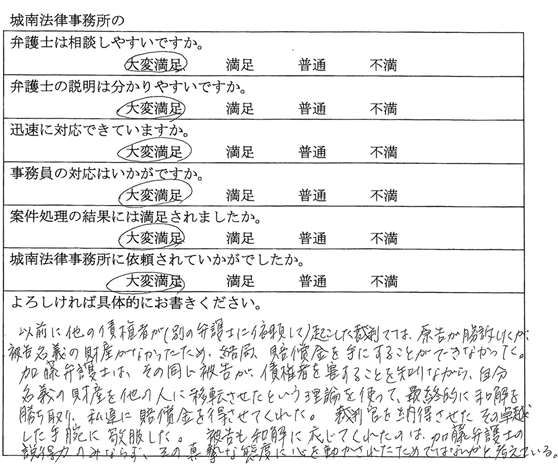 城南法律事務所の
弁護士は相談しやすいですか。
大変満足 満足 普通 不満
弁護士の説明は分かりやすいですか。
大変満足 満足 普通 不満
迅速に対応できていますか。
大変満足 満足 普通 不満
事務員の対応はいかがですか。
大変満足 満足 普通 不満
案件処理の結果には満足されましたか。
大変満足 満足 普通 不満
城南法律事務所に依頼されていかがでしたか。
大変満足 満足 普通 不満
よろしければ具体的にお書きください。
以前に他の債権者が(別の弁護士に依頼して)起こした裁判では、原告が勝訴したが、
被告名義の財産がなかったため、結局、賠償金を手にすることができなかった。
加藤弁護士は、その同じ被告が、債権者を害することを知りながら、自分
名義の財産を他の人に移転させたという理論を使って、最終的に和解を
勝ち取り、私達に賠償金を得させてくれた。裁判官を納得させたその卓越
した手腕に敬服した。被告も和解に応じてくれたのは、加藤弁護士の
説得力のみならず、その真摯な態度に心を動かされたためではないかと考えている。